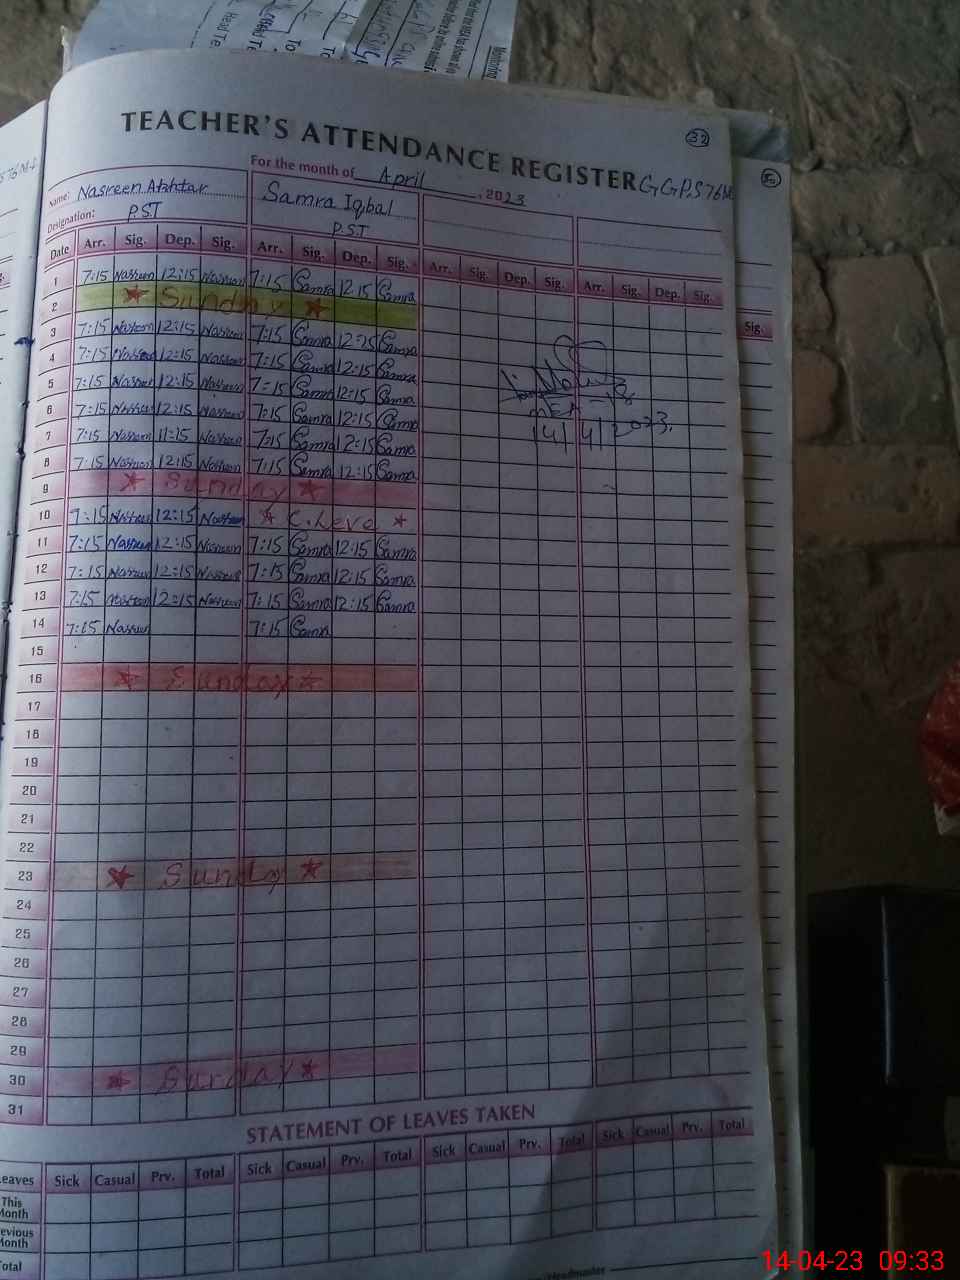 32
TEACHER'S ATTENDANCE REGISTER GGPS 76M
For the month of April, 2023
Name: Nasreen Akhtar Samra Iqbal
Designation: P.S.T P.S.T
Date Arr. Sig. Dep. Sig. Arr. Sig. Dep. Sig. Arr. Sig. Dep. Sig. Arr. Sig. Dep. Sig.
1 7:15 Nasreen 12:15 Nasreen 7:15 Samra 12:15 Samra
2 Sunday
3 7:15 Nasreen 12:15 Nasreen 7:15 Samra 12:15 Samra
4 7:15 Nasreen 12:15 Nasreen 7:15 Samra 12:15 Samra
5 7:15 Nasreen 12:15 Nasreen 7:15 Samra 12:15 Samra
6 7:15 Nasreen 12:15 Nasreen 7:15 Samra 12:15 Samra
7 7:15 Nasreen 11:15 Nasreen 7:15 Samra 12:15 Samra
8 7:15 Nasreen 12:15 Nasreen 7:15 Samra 12:15 Samra
14/4/2023.
9 Sunday
10 7:15 Nasreen 12:15 Nasreen C.Leve
11 7:15 Nasreen 12:15 Nasreen 7:15 Samra 12:15 Samra
12 7:15 Nasreen 12:15 Nasreen 7:15 Samra 12:15 Samra
13 7:15 Nasreen 12:15 Nasreen 7:15 Samra 12:15 Samra
14 7:15 Nasreen 7:15 Samra
15
16 Sunday
17
18
19
20
21
22
23 Sunday
24
25
26
27
28
29
30 Sunday
31
STATEMENT OF LEAVES TAKEN
Leaves Sick Casual Prv. Total Sick Casual Prv. Total Sick Casual Prv. Total Sick Casual Prv. Total
This Month
Previous Month
Total
Headmaster
Sig.
14-04-23 09:33